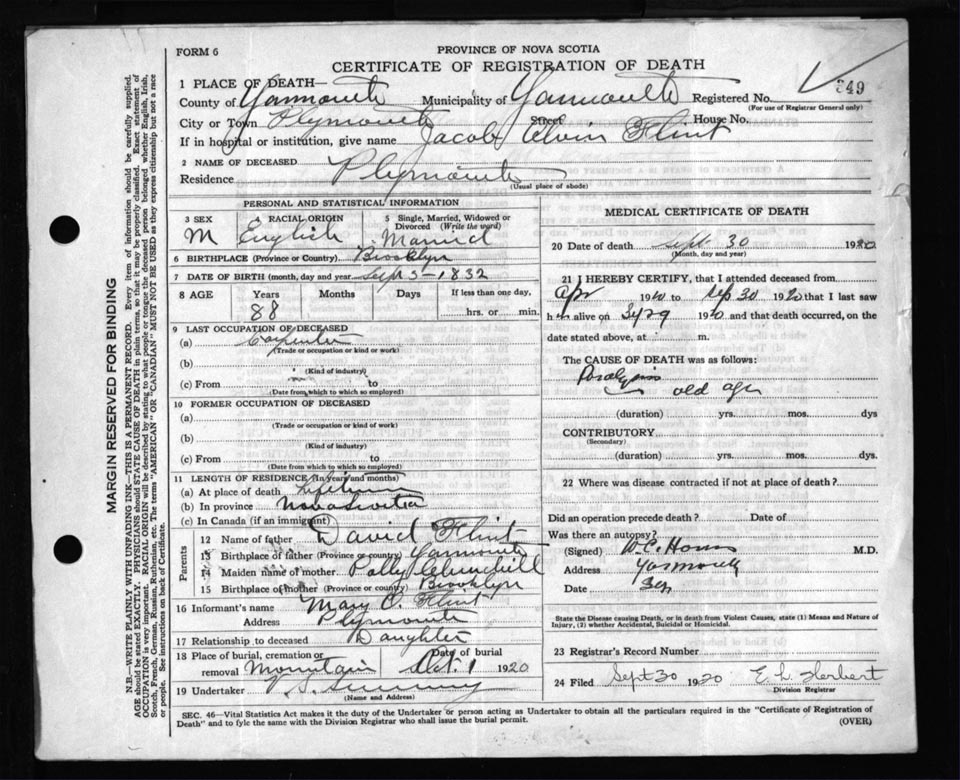 FORM 6
PROVINCE OF NOVA SCOTIA
CERTIFICATE OF REGISTRATION OF DEATH
349
1 PLACE OF DEATH—
County of Yarmouth Municipality of Yarmouth Registered No.
(For use of Registrar General only)
City or Town Plymouth Street House No.
If in hospital or institution, give name
2 NAME OF DECEASED Jacob Alvin Flint
Residence Plymouth
(Usual place of abode)
PERSONAL AND STATISTICAL INFORMATION
3 SEX M
4 RACIAL ORIGIN English
5 Single, Married, Widowed or Divorced (Write the word) Married
6 BIRTHPLACE (Province or Country) Brooklyn
7 DATE OF BIRTH (month, day and year) Sep 5-1832
8 AGE Years Months Days If less than one day,
88 hrs. or min.
9 LAST OCCUPATION OF DECEASED
(a) Carpenter
(Trade or occupation or kind or work)
(b)
(Kind of industry)
(c) From to
(Date from which to which so employed)
10 FORMER OCCUPATION OF DECEASED
(a)
(Trade or occupation or kind of work)
(b)
(Kind of industry)
(c) From to
(Date from which to which so employed)
11 LENGTH OF RESIDENCE (In years and months)
(a) At place of death Lifetime
(b) In province Nova Scotia
(c) In Canada (if an immigrant)
Parents
12 Name of father David Flint
13 Birthplace of father (Province or country) Yarmouth
14 Maiden name of mother Polly Churchill
15 Birthplace of mother (Province or country) Brooklyn
16 Informant's name Mary C. Flint
Address Plymouth
17 Relationship to deceased Daughter
18 Place of burial, cremation or removal Mountain Date of burial Oct. 1 1920
19 Undertaker
(Name and Address)
MEDICAL CERTIFICATE OF DEATH
20 Date of death Sept 30 1920
(Month, day and year)
21 I HEREBY CERTIFY, that I attended deceased from
Apr 1920 to Sep 30 1920 that I last saw
h alive on 1920 and that death occurred, on
date stated above, at m.
The CAUSE OF DEATH was as follows:
Paralysis
old age
(duration) yrs. mos. dys
CONTRIBUTORY
(Secondary)
(duration) yrs. mos. dys.
22 Where was disease contracted if not at place of death?
Did an operation precede death? Date of
Was there an autopsy?
(Signed) M.D.
Address Yarmouth
Date Sep
State the Disease causing Death, or in death from Violent Causes, state (1) Means and Nature of Injury, (2) whether Accidental, Suicidal or Homicidal.
23 Registrar's Record Number
24 Filed Sept 30 1920 E. L. Herbert
Division Registrar
SEC. 46—Vital Statistics Act makes it the duty of the Undertaker or person acting as Undertaker to obtain all the particulars required in the "Certificate of Registration of
Death" and to fyle the same with the Division Registrar who shall issue the burial permit. (OVER)
MARGIN RESERVED FOR BINDING
N.B.—WRITE PLAINLY WITH UNFADING INK—THIS IS A PERMANENT RECORD. Every item of information should be carefully supplied.
AGE should be stated EXACTLY. PHYSICIANS should STATE CAUSE OF DEATH in plain terms, so that it may be properly classified. Exact statement of
OCCUPATION is very important. RACIAL ORIGIN will be described by stating to what people or tongue the deceased person belonged whether English, Irish,
Scotch, French, German, Russian, Ruthenian, etc. The terms "AMERICAN" OR "CANADIAN" MUST NOT BE USED as they express citizenship but not a race
or people. See instructions on back of Certificate.